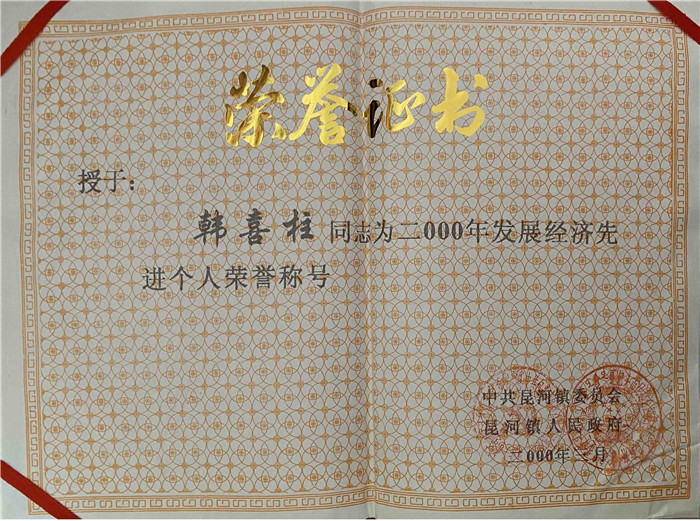 荣誉证书
授于：
韩喜柱同志为二000年发展经济先
进个人荣誉称号
中共昆河镇委员会
昆河镇人民政府
二000年二月